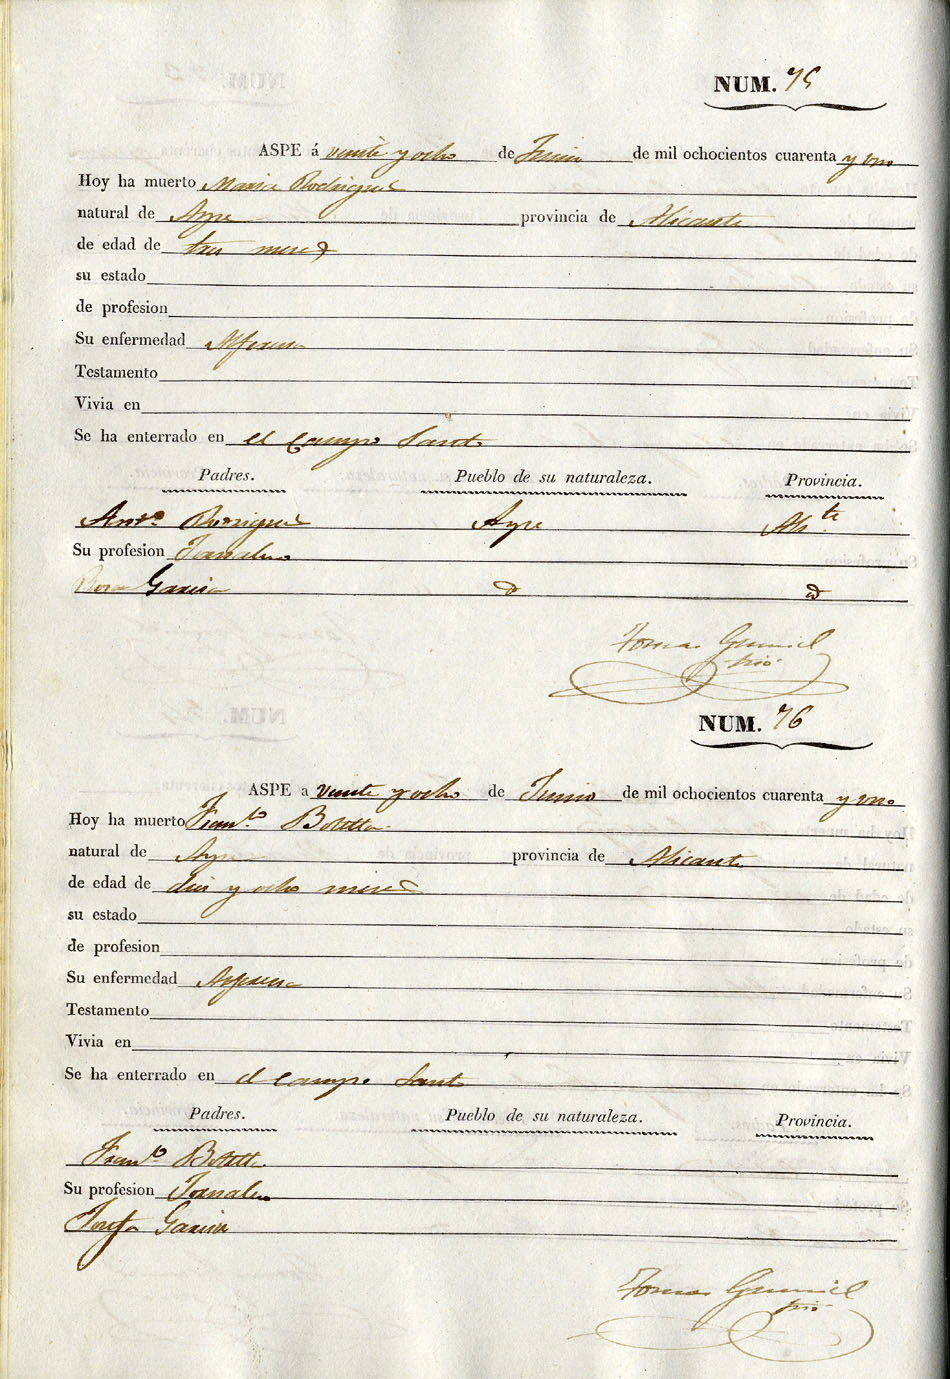 NUM. 75
ASPE á veinte y ocho de Junio de mil ochocientos cuarenta y uno
Hoy ha muerto Maria Rodriguez
natural de Aspe provincia de Alicante
de edad de tres meses
su estado
de profesion
Su enfermedad Alferecia
Testamento
Vivia en
Se ha enterrado en el Campo Santo
Padres. Pueblo de su naturaleza. Provincia.
Antº Rodriguez Aspe Alite
Su profesion Jornalero
Rosa Garcia
Tomas
NUM. 76
ASPE a veinte y ocho de Junio de mil ochocientos cuarenta y uno
Hoy ha muerto Franco Botella
natural de Aspe provincia de Alicante
de edad de diez y ocho meses
su estado
de profesion
Su enfermedad Alferecia
Testamento
Vivia en
Se ha enterrado en el Campo Santo
Padres. Pueblo de su naturaleza. Provincia.
Franco Botella
Su profesion Jornalero
Josefa Garcia
Tomas